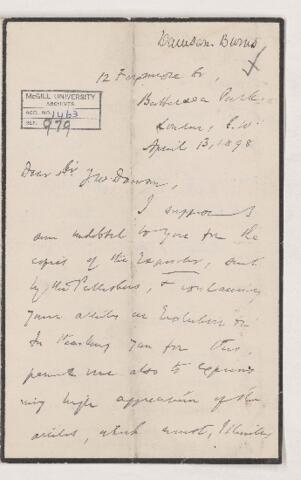 Dawson Burns
12
Battersea Park,
London, S.W.
April 13, 1898
McGILL UNIVERSITY
ARCHIVES
ACC. NO. 1463
REF. 979
Dear Sir J W Dawson,
I suppose I
am indebted to you for the
copies of the Expositor, sent
by the Publishers, & containing
your articles on
In thanking you for this,
permit me also to express
my high appreciation of the
articles, which must, I think